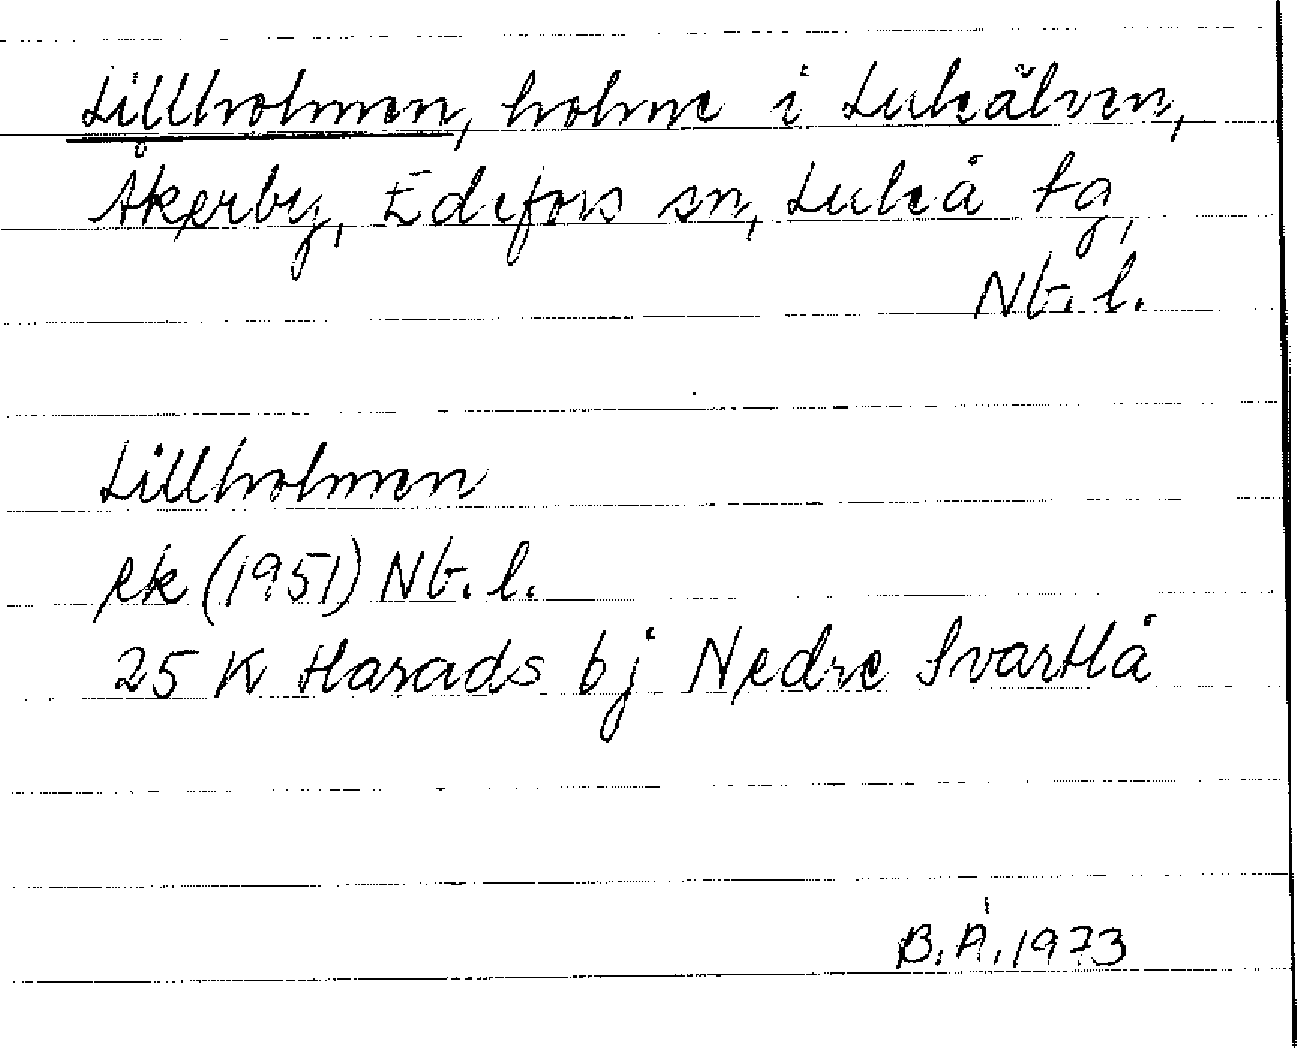 Lillholmen, holme i Luleälven,
Åkerby, Edefors sn, Luleå tg,
Nb. l.
Lillholmen
ek (1951) Nb. l.
25 K Harads bj Nedre Svartlå
B. Å. 1973